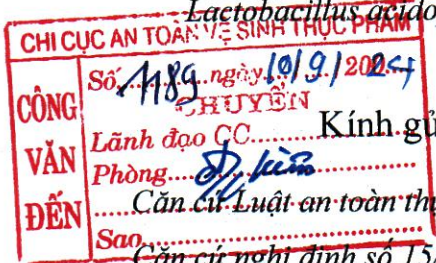 Lactobacillus acido
CHI CỤC AN TOÀN VỆ SINH THỰC PHẨM
CÔNG VĂN ĐẾN
Số 1189 ngày 10/9/2024
CHUYỂN
Lãnh đạo CC
Kính gử
Phòng
Căn cứ Luật an toàn th
Sao
Căn cứ nghị định số 15